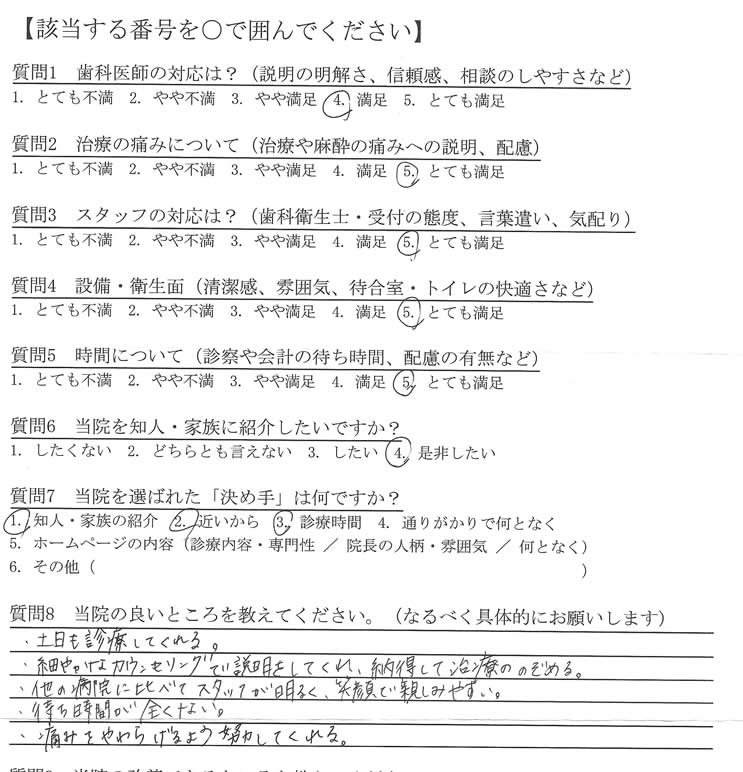 【該当する番号を○で囲んでください】
質問1 歯科医師の対応は？（説明の明解さ、信頼感、相談のしやすさなど）
1. とても不満 2. やや不満 3. やや満足 4. 満足 5. とても満足
質問2 治療の痛みについて（治療や麻酔の痛みへの説明、配慮）
1. とても不満 2. やや不満 3. やや満足 4. 満足 5. とても満足
質問3 スタッフの対応は？（歯科衛生士・受付の態度、言葉遣い、気配り）
1. とても不満 2. やや不満 3. やや満足 4. 満足 5. とても満足
質問4 設備・衛生面（清潔感、雰囲気、待合室・トイレの快適さなど）
1. とても不満 2. やや不満 3. やや満足 4. 満足 5. とても満足
質問5 時間について（診察や会計の待ち時間、配慮の有無など）
1. とても不満 2. やや不満 3. やや満足 4. 満足 5. とても満足
質問6 当院を知人・家族に紹介したいですか？
1. したくない 2. どちらとも言えない 3. したい 4. 是非したい
質問7 当院を選ばれた「決め手」は何ですか？
1. 知人・家族の紹介 2. 近いから 3. 診療時間 4. 通りがかりで何となく
5. ホームページの内容（診療内容・専門性 ／ 院長の人柄・雰囲気 ／ 何となく）
6. その他（ ）
質問8 当院の良いところを教えてください。（なるべく具体的にお願いします）
・土日も診療してくれる。
・細やかなカウンセリングで説明をしてくれ、納得して治療ののぞめる。
・他の病院に比べてスタッフが明るく、笑顔で親しみやすい。
・待ち時間が全くない。
・痛みをやわらげるよう努力してくれる。